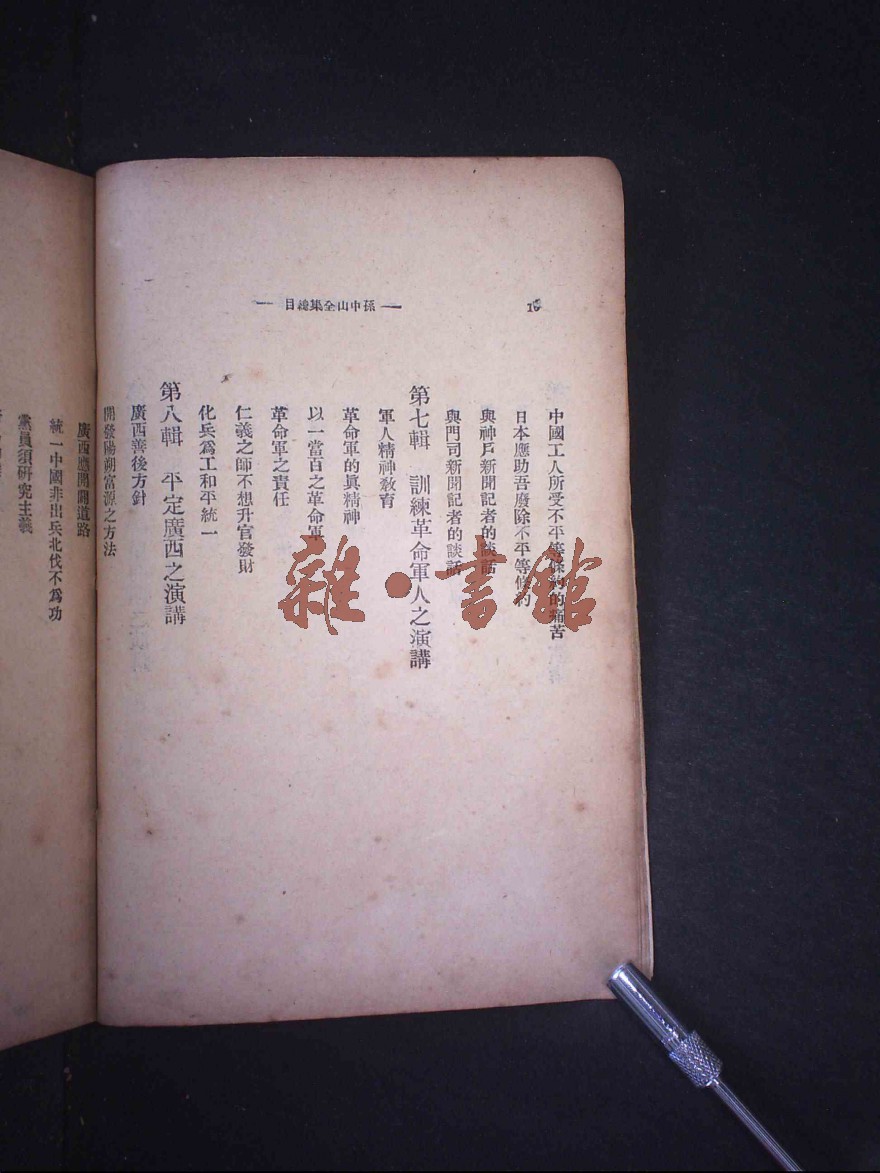 — 孫中山全集總目 —
中國工人所受不平等條約的痛苦
日本應助吾廢除不平等條約
與神戶新聞記者的談話
與門司新聞記者的談話
第七輯　訓練革命軍人之演講
軍人精神教育
革命軍的眞精神
以一當百之革命軍
革命軍之責任
仁義之師不想升官發財
化兵爲工和平統一
第八輯　平定廣西之演講
廣西善後方針
開發陽朔富源之方法
廣西應開闢道路
統一中國非出兵北伐不爲功
黨員須研究主義
雜·書館